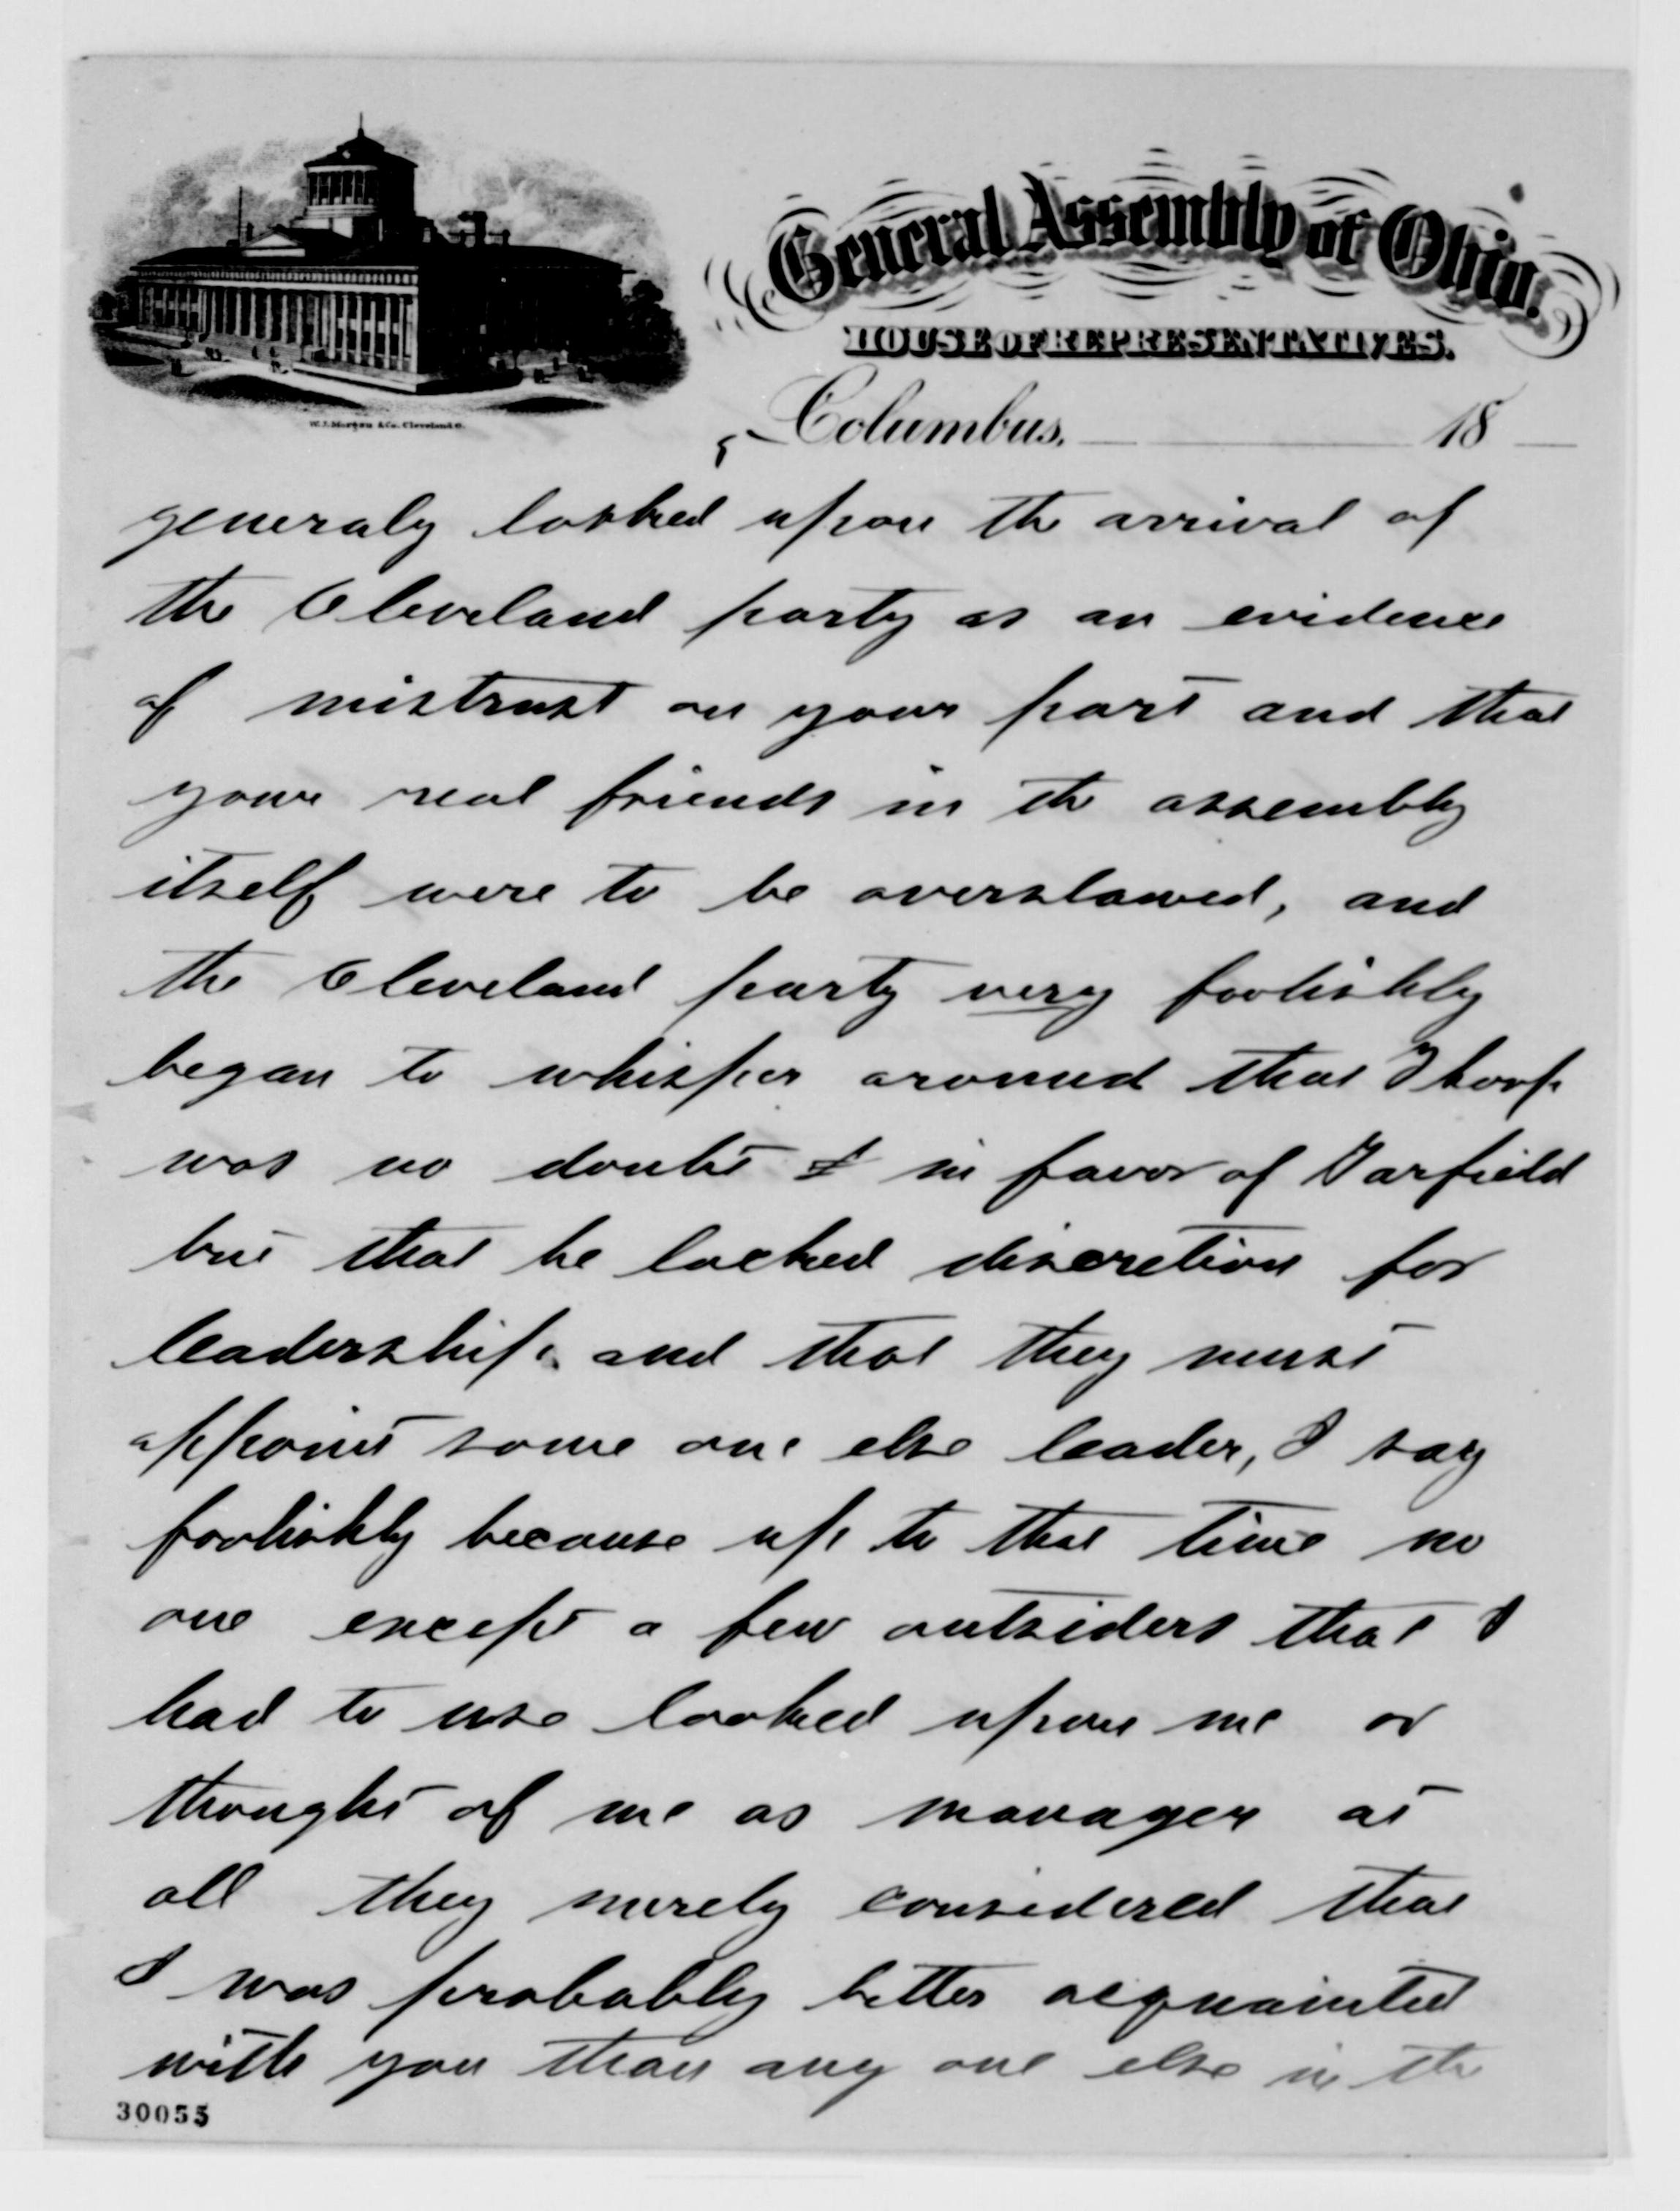 General Assembly of Ohio.
HOUSE OF REPRESENTATIVES.
W.J. Morgan & Co. Cleveland O.
Columbus, 18
generaly looked upon the arrival of
the Cleveland party as an evidence
of mistrust on your part and that
your real friends in the assembly
itself were to be overslawed, and
the Cleveland party very foolishly
began to whisper around that Thorp
was no doubt in favor of Garfield
but that he lacked discretion for
leadership. and that they must
appoint some one else leader, I say
foolishly because up to that time no
one except a few outsiders that I
had to use looked upon me or
thought of me as manager at
all they merely considered that
I was probably better acquainted
with you than any one else in the
30055